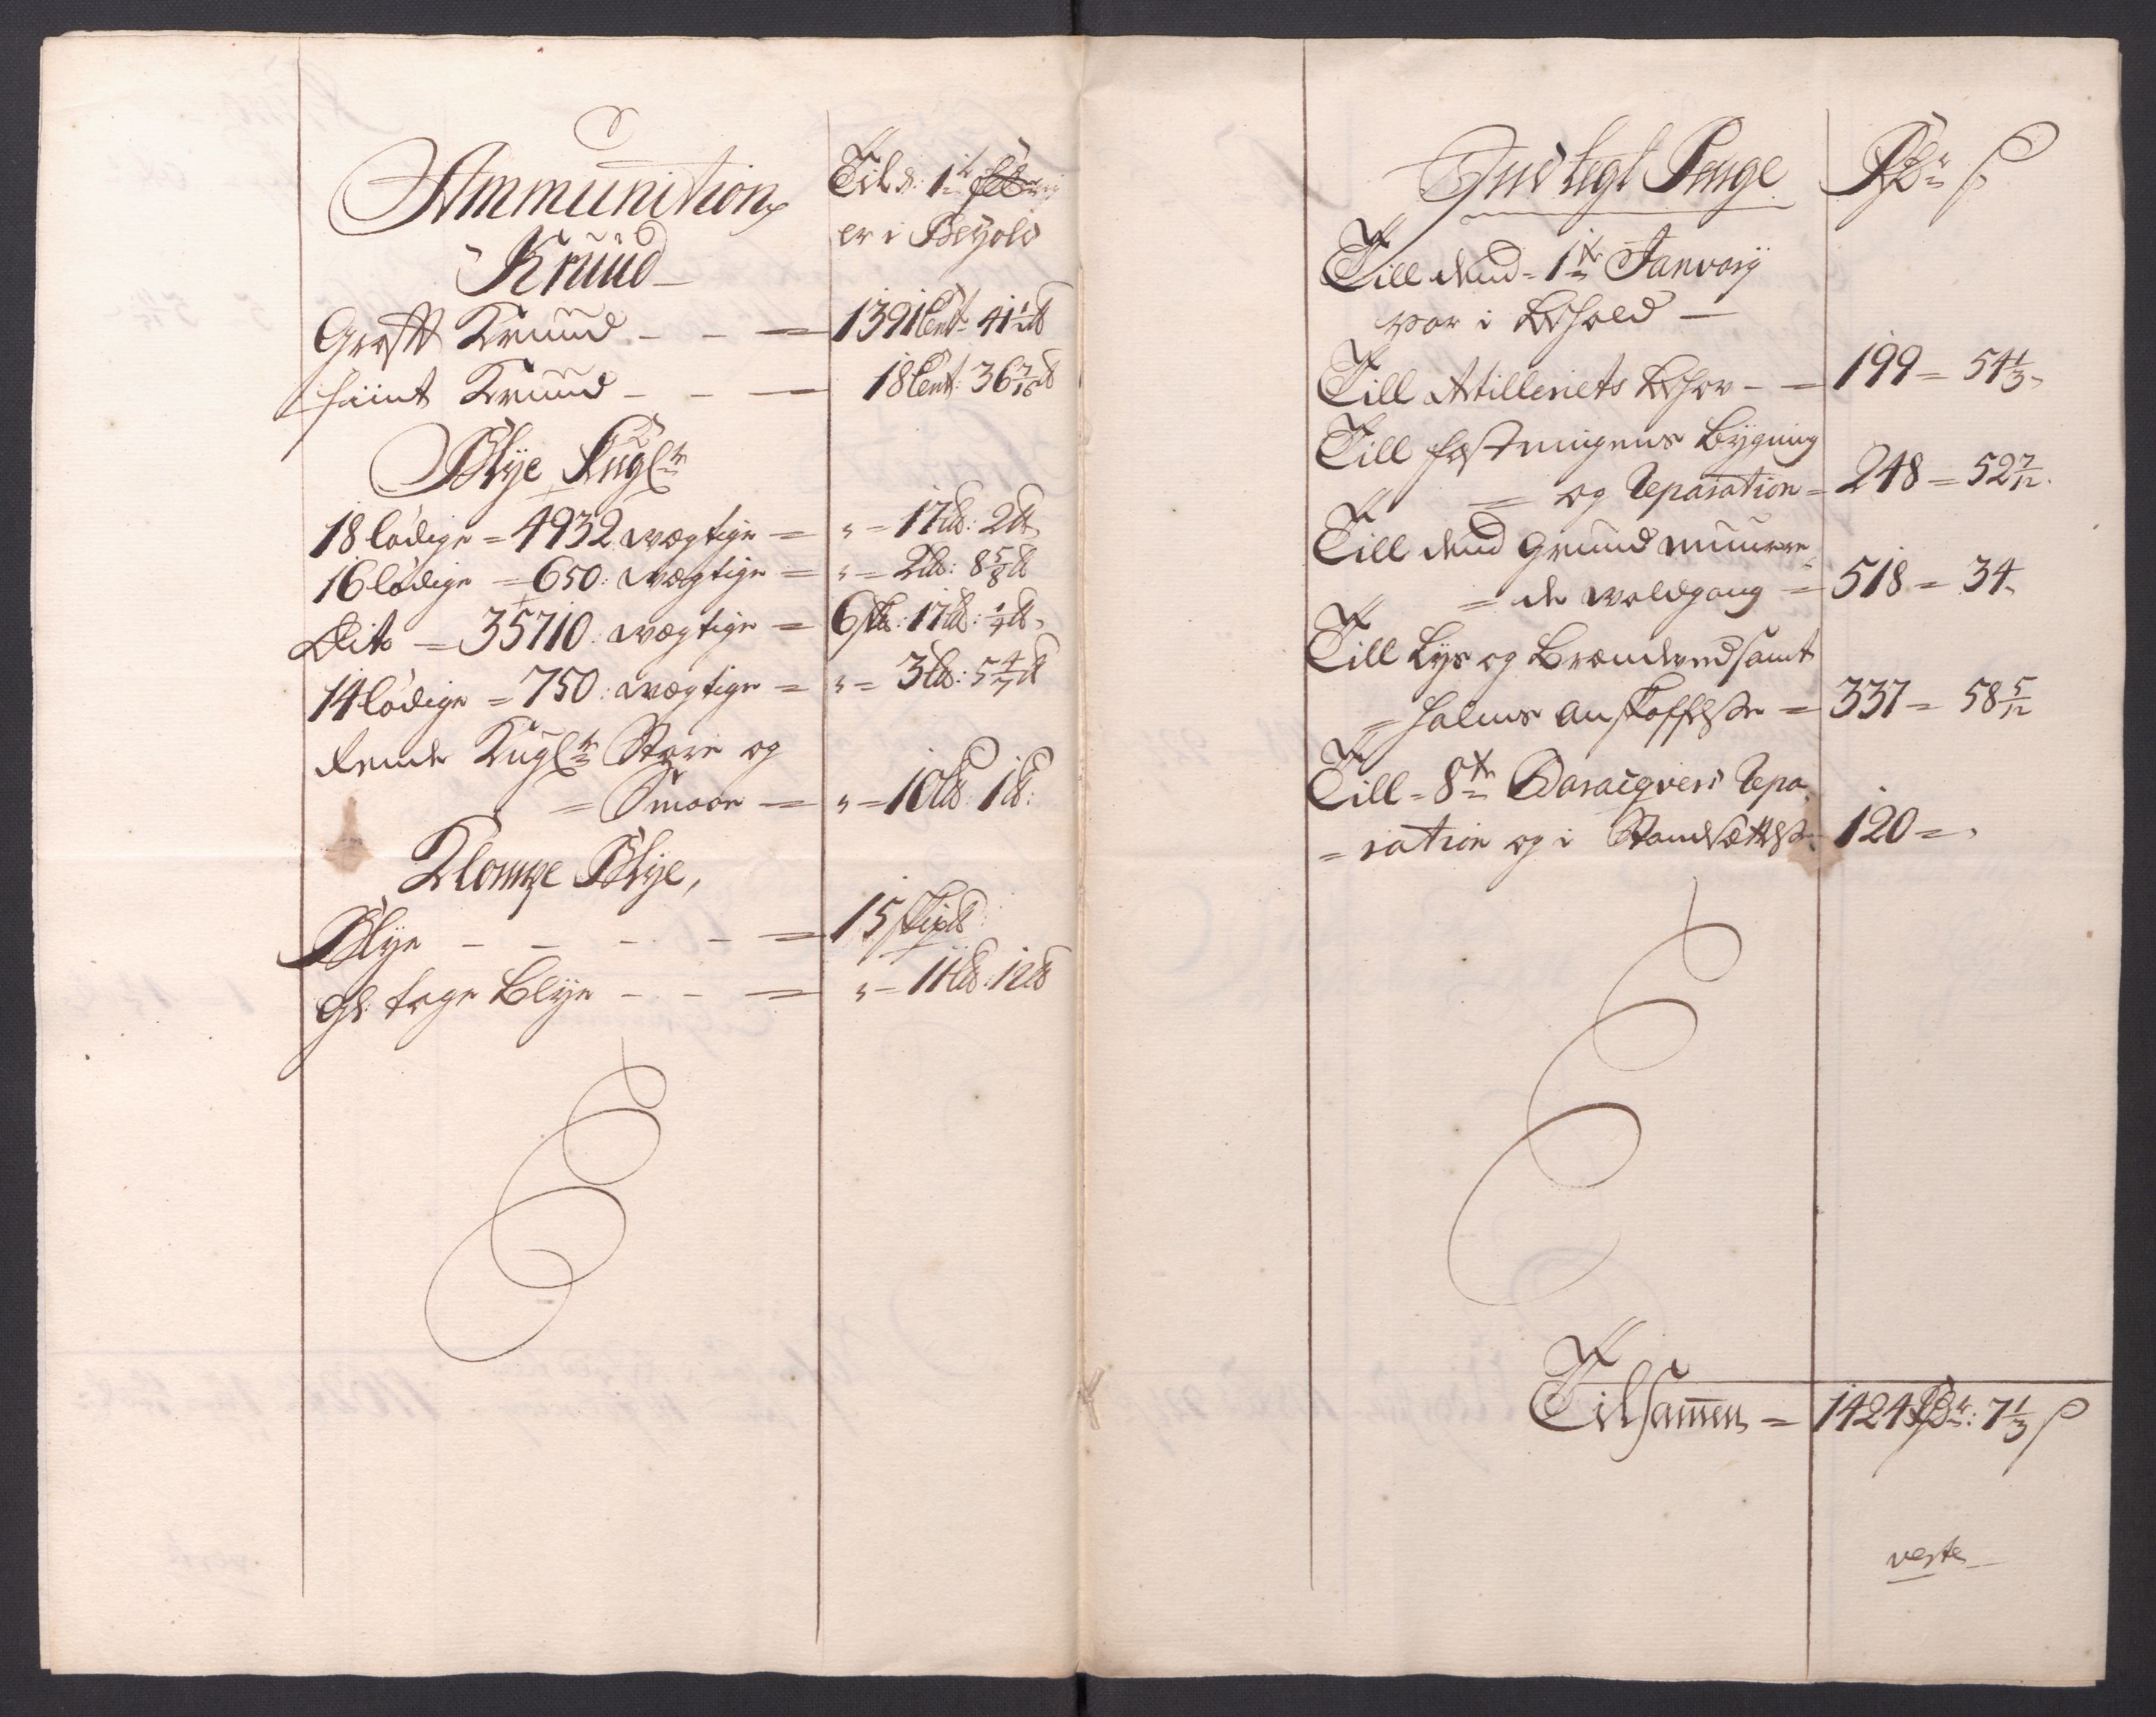 Ammunition
Kruud
Til d: 1te Febru
er i Behold
Groft Kruud - - = 1391 Cent 41 1/2 ℔
fiint Kruud - - - 18 Cent: 36 7/16 ℔
Blye Kugler
18 lödige = 4932 wægtige = " = 17 L℔: 2 ℔
16 lödige = 650: wægtige = " = 2 L℔: 8 5/8 ℔
Dito = 35710: wægtige = 6 sk℔: 17 L℔: 1/4 ℔
14 lödige = 750: wægtige = " = 3 L℔: 5 4/7 ℔
Kugler Store og
= Smaae = " = 10 L℔ 1 ℔:
Klompe Blye,
Blye - - - - = 15 skip℔
Gl: tage Blye - - = " = 11 L℔: 12 ℔
Indtegt Penge Rdr ß
Till dend = 1te Janvarij
var i Behold —
Till Artilleriets Behov - = 199 = 54 1/3
Till fæstningens Bygning
= og Reparation = 248 = 52 7/12
Till dend Grund muure
= de woldgang = 518 = 34
Till Lys og Brændeved samt
= halms anskaffelse = 337 = 58 5/12
Till = 8te Baracqvers Repa
= ration og i Standsættelse 120 = "
Tilsamen = 1424 Rdr: 7 1/3 ß